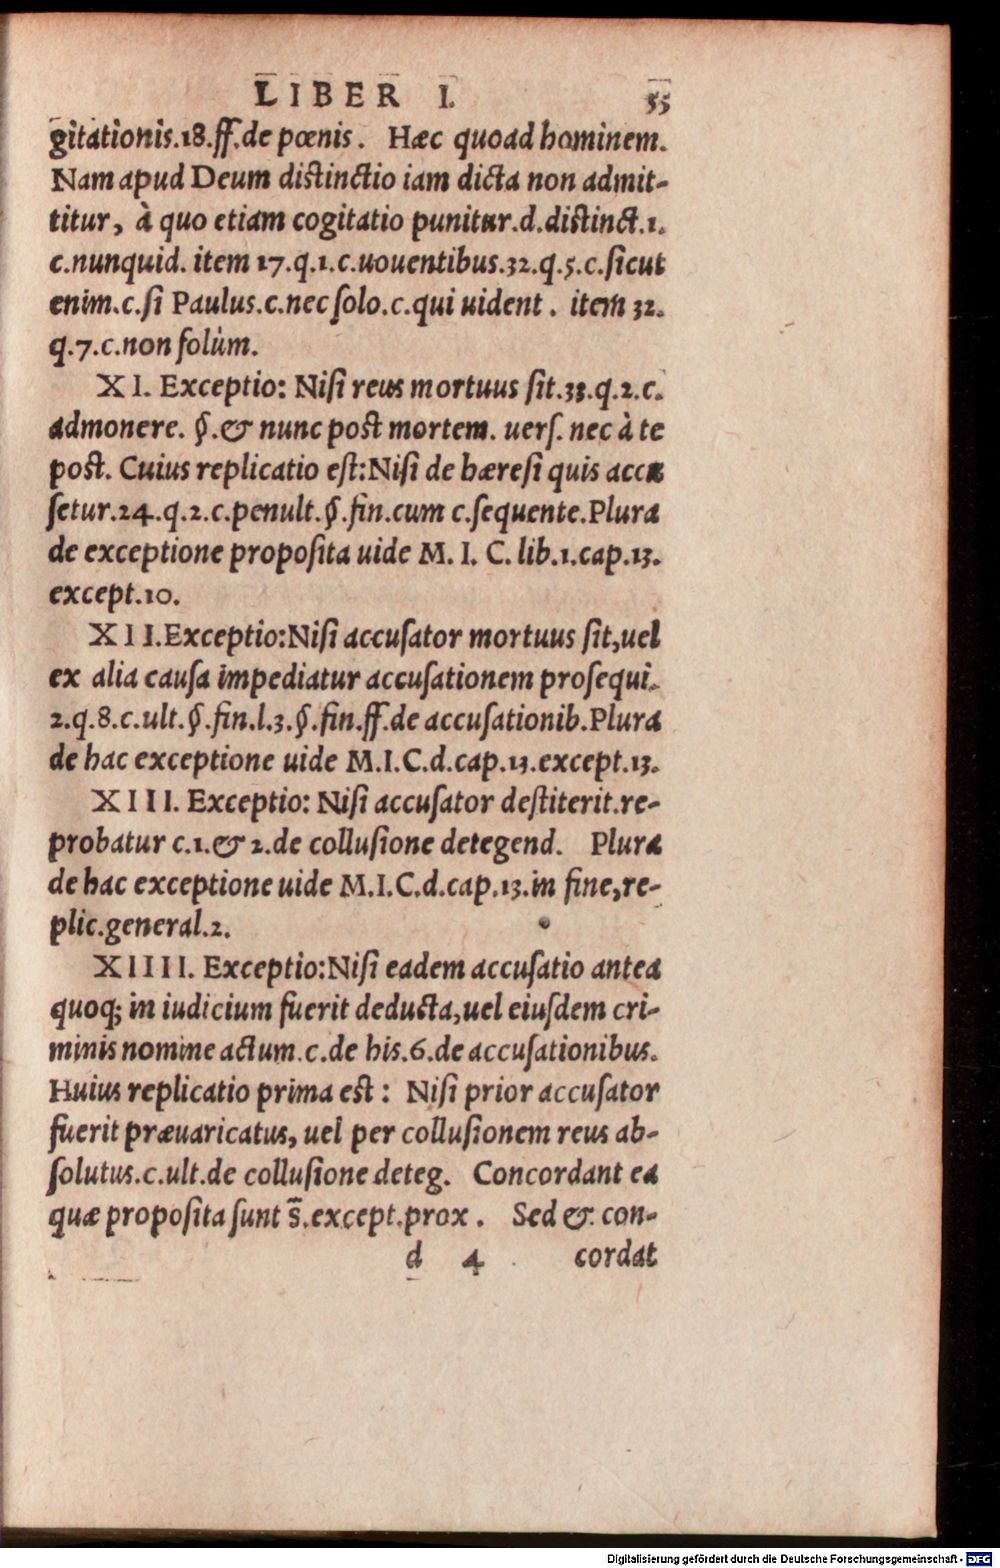 LIBER I. 55
gitationis.18.ff.de pœnis. Hæc quoad hominem.
Nam apud Deum distinctio iam dicta non admit-
titur, à quo etiam cogitatio punitur.d.distinct.1.
c.nunquid. item 17.q.1.c.uouentibus.32.q.5.c.sicut
enim.c.si Paulus.c.nec solo.c.qui uident. item 32.
q.7.c.non solùm.
XI. Exceptio: Nisi reus mortuus sit.33.q.2.c.
admonere. §.& nunc post mortem. uers. nec à te
post. Cuius replicatio est:Nisi de hæresi quis accu
setur.24.q.2.c.penult.§.fin.cum c.sequente.Plura
de exceptione proposita uide M. I. C. lib.1.cap.13.
except.10.
XII.Exceptio:Nisi accusator mortuus sit,uel
ex alia causa impediatur accusationem prosequi.
2.q.8.c.ult.§.fin.l.3.§.fin.ff.de accusationib.Plura
de hac exceptione uide M.I.C.d.cap.13.except.13.
XIII. Exceptio: Nisi accusator destiterit.re-
probatur c.1.& 2.de collusione detegend. Plura
de hac exceptione uide M.I.C.d.cap.13.in fine,re-
plic.general.2.
XIIII. Exceptio:Nisi eadem accusatio antea
quoq; in iudicium fuerit deducta,uel eiusdem cri-
minis nomine actum.c.de his.6.de accusationibus.
Huius replicatio prima est: Nisi prior accusator
fuerit præuaricatus, uel per collusionem reus ab-
solutus.c.ult.de collusione deteg. Concordant ea
quæ proposita sunt s̄.except.prox. Sed & con-
d 4 cordat
Digitalisierung gefördert durch die Deutsche Forschungsgemeinschaft - DFG